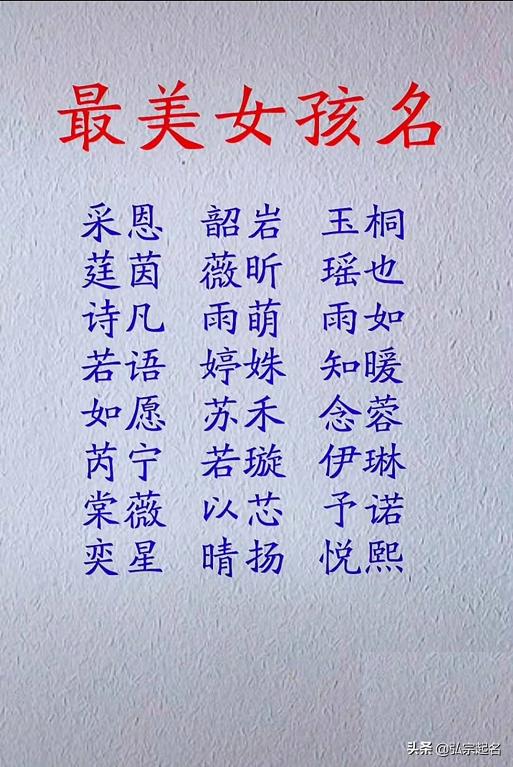 最美女孩名
采恩 韶岩 玉桐
莛茵 薇昕 瑶也
诗凡 雨萌 雨如
若语 婷姝 知暖
如愿 苏禾 念蓉
芮宁 若璇 伊琳
棠薇 以芯 予诺
奕星 晴扬 悦熙
头条 @弘宗起名